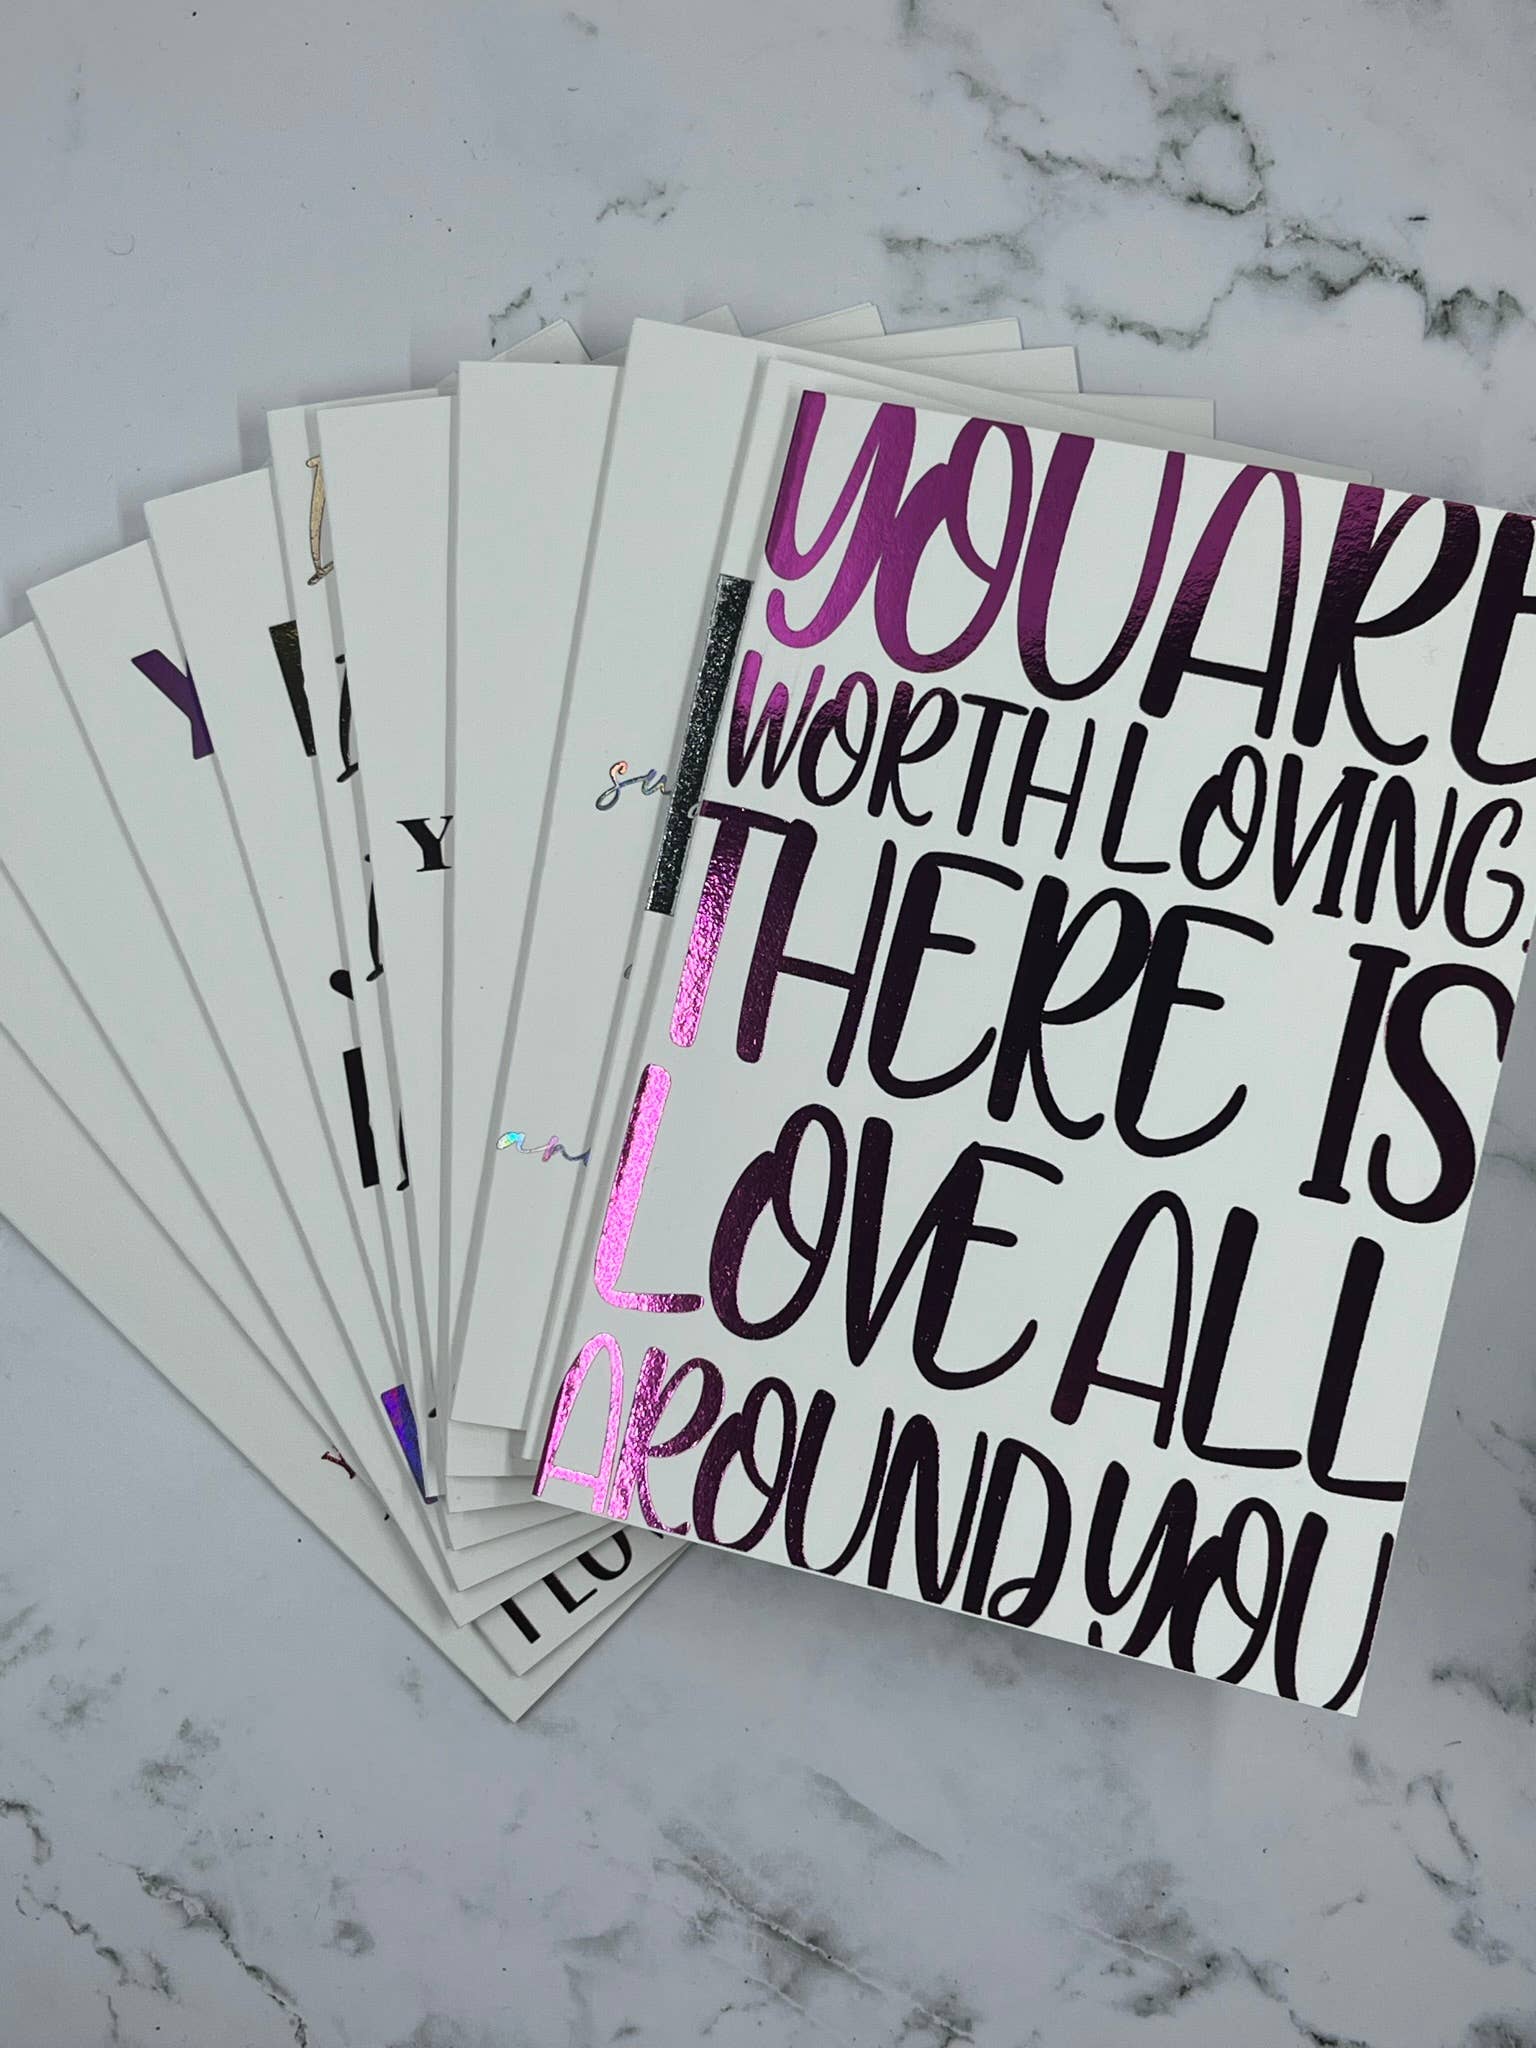 YOU ARE
WORTH LOVING.
THERE IS
LOVE ALL
AROUND YOU
Y
Y
su
an
Y
I LO